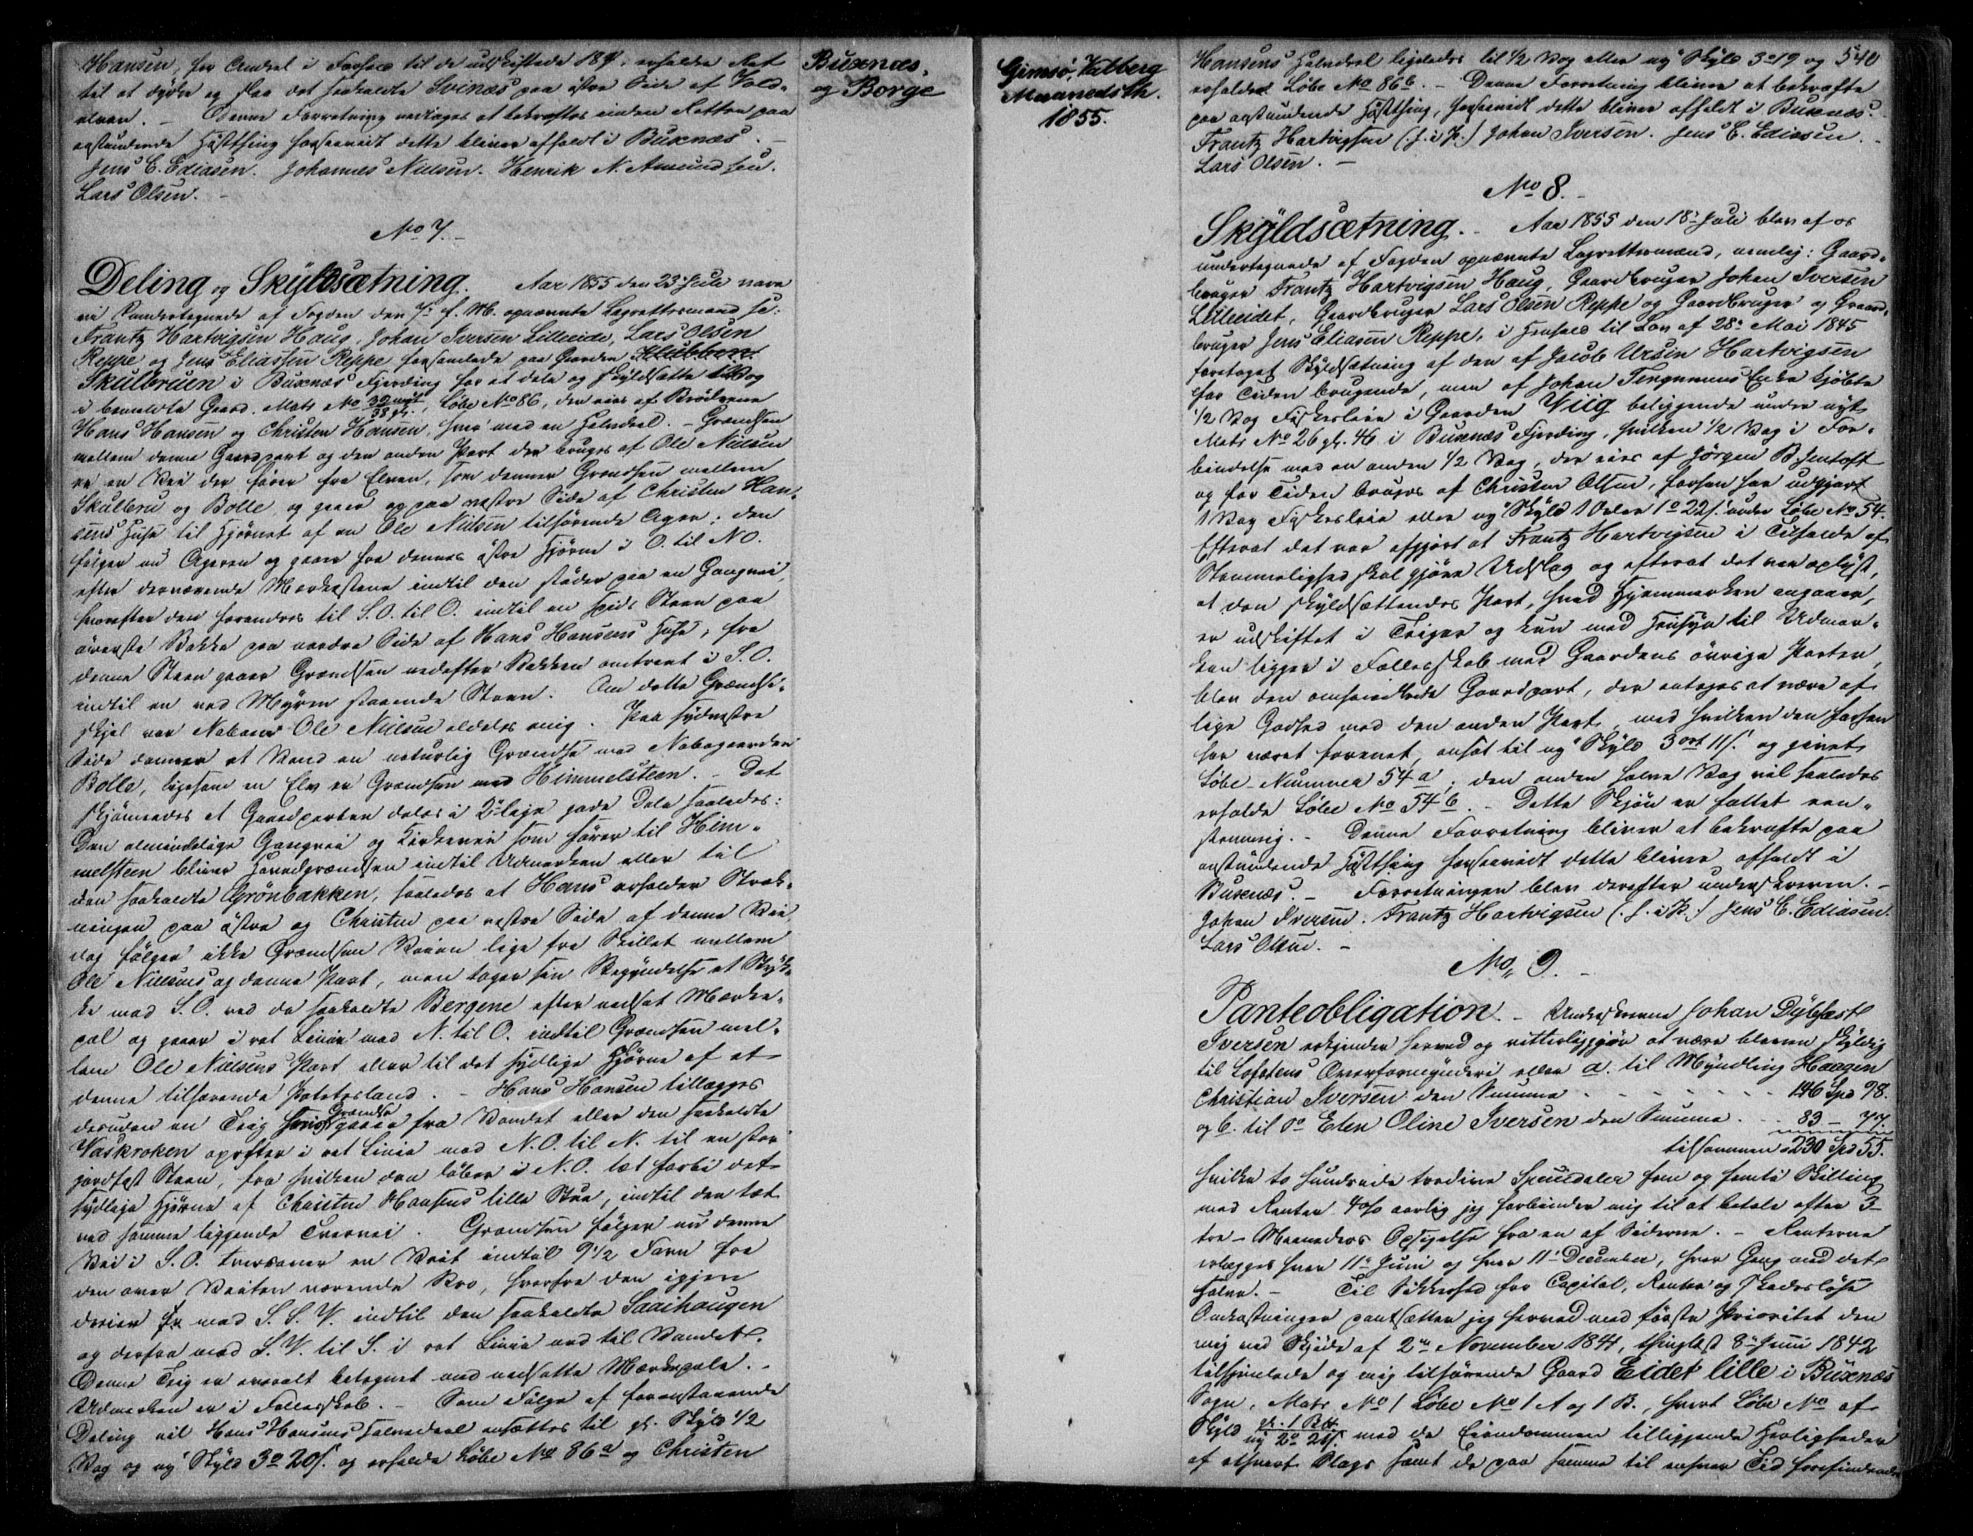 Hansen, for Andeel i Forhold til de udskiftede 184, erholder Ret
til at dyrke og slaa det saakaldte Svinæs paa østre Side af Vold-
elven. — Denne Forretning vedtages at bekræftes inden Retten paa
anstundende Høstthing forsaavidt dette bliver afholdt i Buxnæs. —
Jens E. Ediasen. Johannes Nielsen. Henrik N. Amundsen.
Lars Olsen. —
No 7. —
Deling og Skyldsætning. Aar 1855 den 23de Juli vare
vi Undertegnede af Fogden den 7de f. M. opnævnte Lagrettesmænd
Frantz Hartvigsen Haug, Johan Iversen Lilleeide, Lars Olsen
Reppe og Jens Eliassen Reppe forsamlede paa Gaarden Klubben
Skulbruen i Buxnæs Fjerding for at dele og skyldsætte 1 Vog
i bemeldte Gaard, Mats No 32 nyt / 38 gl., Løbe No 86, der eies af Brødrene
Hans Hansen og Christen Hansen, hver med en Halvdeel. — Grændsen
mellem denne Gaardpart og den anden Part der bruges af Ole Nielsen
er en Vei der fører fra Elven, som danner Grændsen mellem
Skulbru og Bolle, og gaaer op paa vestre Side af Christen Han-
sens Huse til Hjørnet af en Ole Nielsen tilhørende Ager; den
følger nu Ageren og gaaer fra dennes østre Hjørne i O. til N O.
efter derværende Mærkestene indtil den støder paa en Gangvei,
hvorefter den forandres til S. O. til O. indtil en spids Steen paa
øverste Bakke paa nordre Side af Hans Hansens Huse, fra
denne Steen gaaer Grændsen nedefter Bakken omtrent i S. O.
indtil en ved Myren staaende Steen. Om dette Grændse-
skjel var Naboen Ole Nielsen aldeles enig. Paa sydvestre
Side danner et Vand en naturlig Grændse med Nabogaarden
Bolle, ligesom en Elv er Grændsen med Himmelsteen. — Det
skjønnedes at Gaardparten deles i 2de lige gode Dele saaledes:
Den almindelige Gangvei og Kirkevei som fører til Him-
melsteen bliver Hovedgrændsen indtil Udmarken eller til
den saakaldte Grønbakken, saaledes at Hans erholder Stræk-
ningen paa østre og Christen paa vestre Side af denne Vei
dog følger ikke Grændsen Veien lige fra Skillet mellem
Ole Nielsens og denne Part, men tager sin Begyndelse et Styk-
ke mod S. O. ved de saakaldte Bergene efter nedsat Mærke-
pæl og gaaer i ret Linie mod N. til O. indtil Grændsen mel-
lem Ole Nielsens Part eller til det sydlige Hjørne af et
denne tilhørende Potetesland. — Hans Hansen tillægges
desuden en Teig hvis Grændse gaaer fra Vandet eller den saakaldte
Vaskroken opefter i ret Linie mod N. O. til N. til en stor
jordfast Steen, fra hvilken den løber i N. O. tæt forbi det
sydlige Hjørne af Christen Hansens lille Stue, indtil den tæt
ved samme liggende Tvervei. Grændsen følger nu denne
Vei i S. O. tversover en Veit indtil 9 1/2 Favn fra
den over Veiten værende Bro, hvorfra den igjen
dreier mod S. S. V. indtil den saakaldte Saaihaugen
og derfra mod S. V. til S. i ret Linie ned til Vandet.
Denne Teig er overalt betegnet med nedsatte Mærkepæle. —
Udmarken er i Fællesskab. — Som Følge af foranstaaende
Deling vil Hans Hansens Halvdeel ansættes til gl. Skyld 1/2
Vog og ny Skyld 3 o 20 s. og erholde Løbe No 86 a og Christen
Buxnæs,
og Borge
Gimsø, Valberg
Maanedsth.
1855.
540
Hansens Halvdeel ligeledes til 1/2 Vog eller ny Skyld 3 o 19 og
erholder Løbe No 86 b. — Denne Forretning bliver at bekræfte
paa anstundende Høstthing, forsaavidt dette bliver afholdt i Buxnæs.
Frantz Hartvigsen (h. i P.) Johan Iversen. Jens E. Ediasen. —
Lars Olsen. —
No 8. —
Skyldsætning. — Aar 1855 den 18de Juli blev af os
undertegnede af Fogden opnævnte Lagrettesmænd, nemlig: Gaard-
bruger Frantz Hartvigsen Haug, Gaardbruger Johan Iversen
Lilleeidet, Gaardbruger Lars Olsen Reppe og Gaardbruger og Gaard-
bruger Jens Eliasen Reppe, i Henhold til Lov af 28de Mai 1845
foretaget Skyldsætning af den af Jacob Ursin Hartvigsen
for Tiden brugende, men af Johan Tergnæses Enke kjøbte
1/2 Vog Fiskesleie i Gaarden Viig beliggende under nyt
Mats No 26 gl. 46 i Buxnæs Fjerding, hvilken 1/2 Vog i For-
bindelse med en anden 1/2 Vog, der eies af Jørgen B. Jentoft
og for Tiden bruges af Christen Olsen, forhen har udgjort
1 Vog Fiskesleie eller ny Skyld 1 Daler 1 o 22 s. under Løbe No 54.
Efterat det var afgjort at Frantz Hartvigsen i Tilfælde af
Stemmelighed skal gjøre Udslag og efterat det var oplyst,
at den skyldsættendes Part, hvad Hjemmarken angaaer,
er udskiftet i Teiger og kun med Hensyn til Udmar-
ken ligger i Fællesskab med Gaardens øvrige Parter,
blev den omhandlede Gaardpart, der antages at være af
lige Godhed med den anden Part, med hvilken den forhen
har været forenet, ansat til ny Skyld 3 ort 11 s. og givet
Løbe-Nummer 54 a, den anden halve Vog vil saaledes
erholde Løbe No 54 b. — Dette Skjøn er fattet een-
stemmig. — Denne Forretning bliver at bekræfte paa
anstundende Høstthing forsaavidt dette bliver afholdt i
Buxnæs. — Forretningen blev derefter underskreven. —
Johan Iversen. Frantz Hartvigsen (h. i P.) Jens E. Ediasen.
Lars Olsen. —
No 9. —
Panteobligation. — Underskrevne Johan Dybfæst
Iversen erkjender herved og vitterliggjør at være bleven skyldig
til Lofotens Overformynderi eller a. til Myndling Haagen
Christian Iversen den Summa - - - - - - 146 Spd 98.
og b. til Do Elen Oline Iversen den Summa - - 83 — 77.
tilsammen 230 Spd 55.
hvilke to hundrede tredive Speciedaler fem og femti Skilling
med Renter 4 o/o aarlig jeg forbinder mig til at betale efter 3
tre - Maaneders Opsigelse fra en af Siderne. — Renterne
erlægges hver 11te Juni og hver 11te December, hver Gang med det
halve. — Til Sikkerhed for Capital, Renter og skadesløse
Omkostninger pantsætter jeg herved med første Prioritet den
mig ved Skjøde af 2den November 1841, thinglæst 8de Juni 1842
tilhjemlede og mig tilhørende Gaard Eidet lille i Buxnæs
Sogn, Mats No 1 Løbe No 1 A og 1 B., hvert Løbe No af
Skyld gl. 1 / ny 2 o 20 s med de Eiendommen tilliggende Herligheder
af ethvert Slags samt de paa samme til enhver Tid forefindende